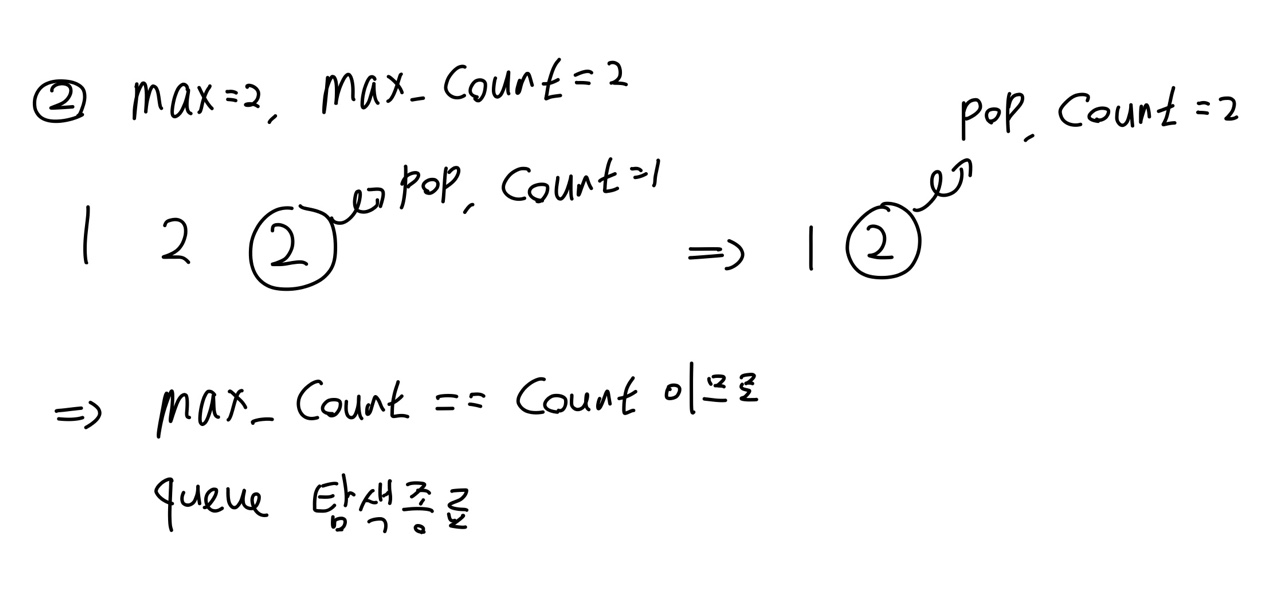 ② max=2, max_Count=2
pop, Count=2
pop, Count=1
1 2 2 => 1 2
=> max_Count == Count 이므로
queue 탐색종료